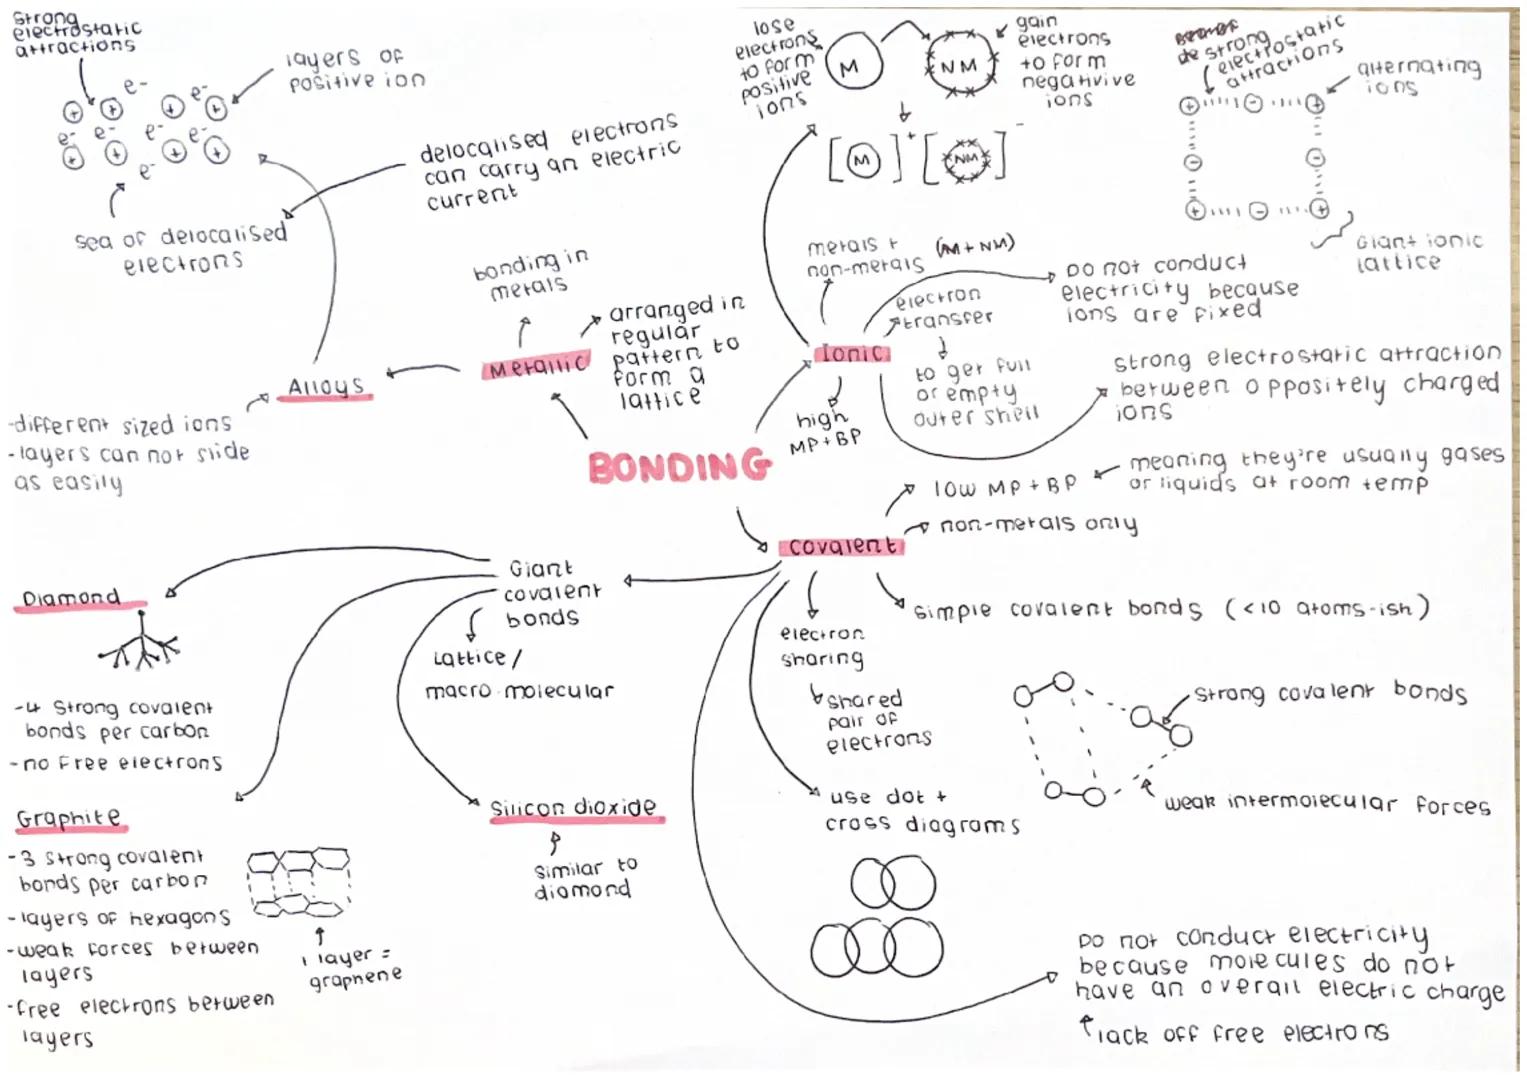 strong
electrostatic
attractions
layers of
positive ion
e-
e-
e-
e-
e-
e-
e-
sea of delocalised
electrons
delocalised electrons
can carry an electric
current
bonding in
metals
Metallic
arranged in
regular
pattern to
form a
lattice
Alloys
-different sized ions
-layers can not slide
as easily
BONDING
lose
electrons
to form
positive
ions
M
NM
gain
electrons
to form
negativive
ions
[M]+ [NM]-
strong
electrostatic
attractions
alternating
ions
Giant ionic
lattice
metals +
non-metals (M+NM)
Ionic
electron
transfer
to get full
or empty
outer shell
high
MP+BP
Do not conduct
electricity because
ions are fixed
strong electrostatic attraction
between oppositely charged
ions
covalent
low MP+BP
meaning they're usually gases
or liquids at room temp
non-metals only
simple covalent bonds (<10 atoms-ish)
electron
sharing
shared
pair of
electrons
use dot +
cross diagrams
strong covalent bonds
weak intermolecular forces
Do not conduct electricity
because molecules do not
have an overall electric charge
lack off free electrons
Giant
covalent
bonds
Lattice/
macro molecular
Diamond
-4 strong covalent
bonds per carbon
-no free electrons
Graphite
-3 strong covalent
bonds per carbon
-layers of hexagons
-weak forces between
layers
-free electrons between
layers
1 layer =
graphene
Silicon dioxide
similar to
diamond